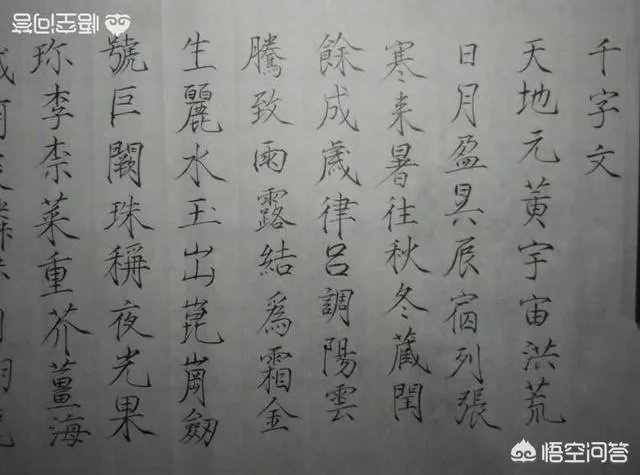 千字文
天地元黃宇宙洪荒
日月盈昃辰宿列張
寒来暑往秋冬藏閏
餘成歲律呂調陽雲
騰致雨露結爲霜金
生麗水玉出崑崗劔
號巨闕珠稱夜光果
珎李柰菜重芥薑海
悟空问答
悟空问答